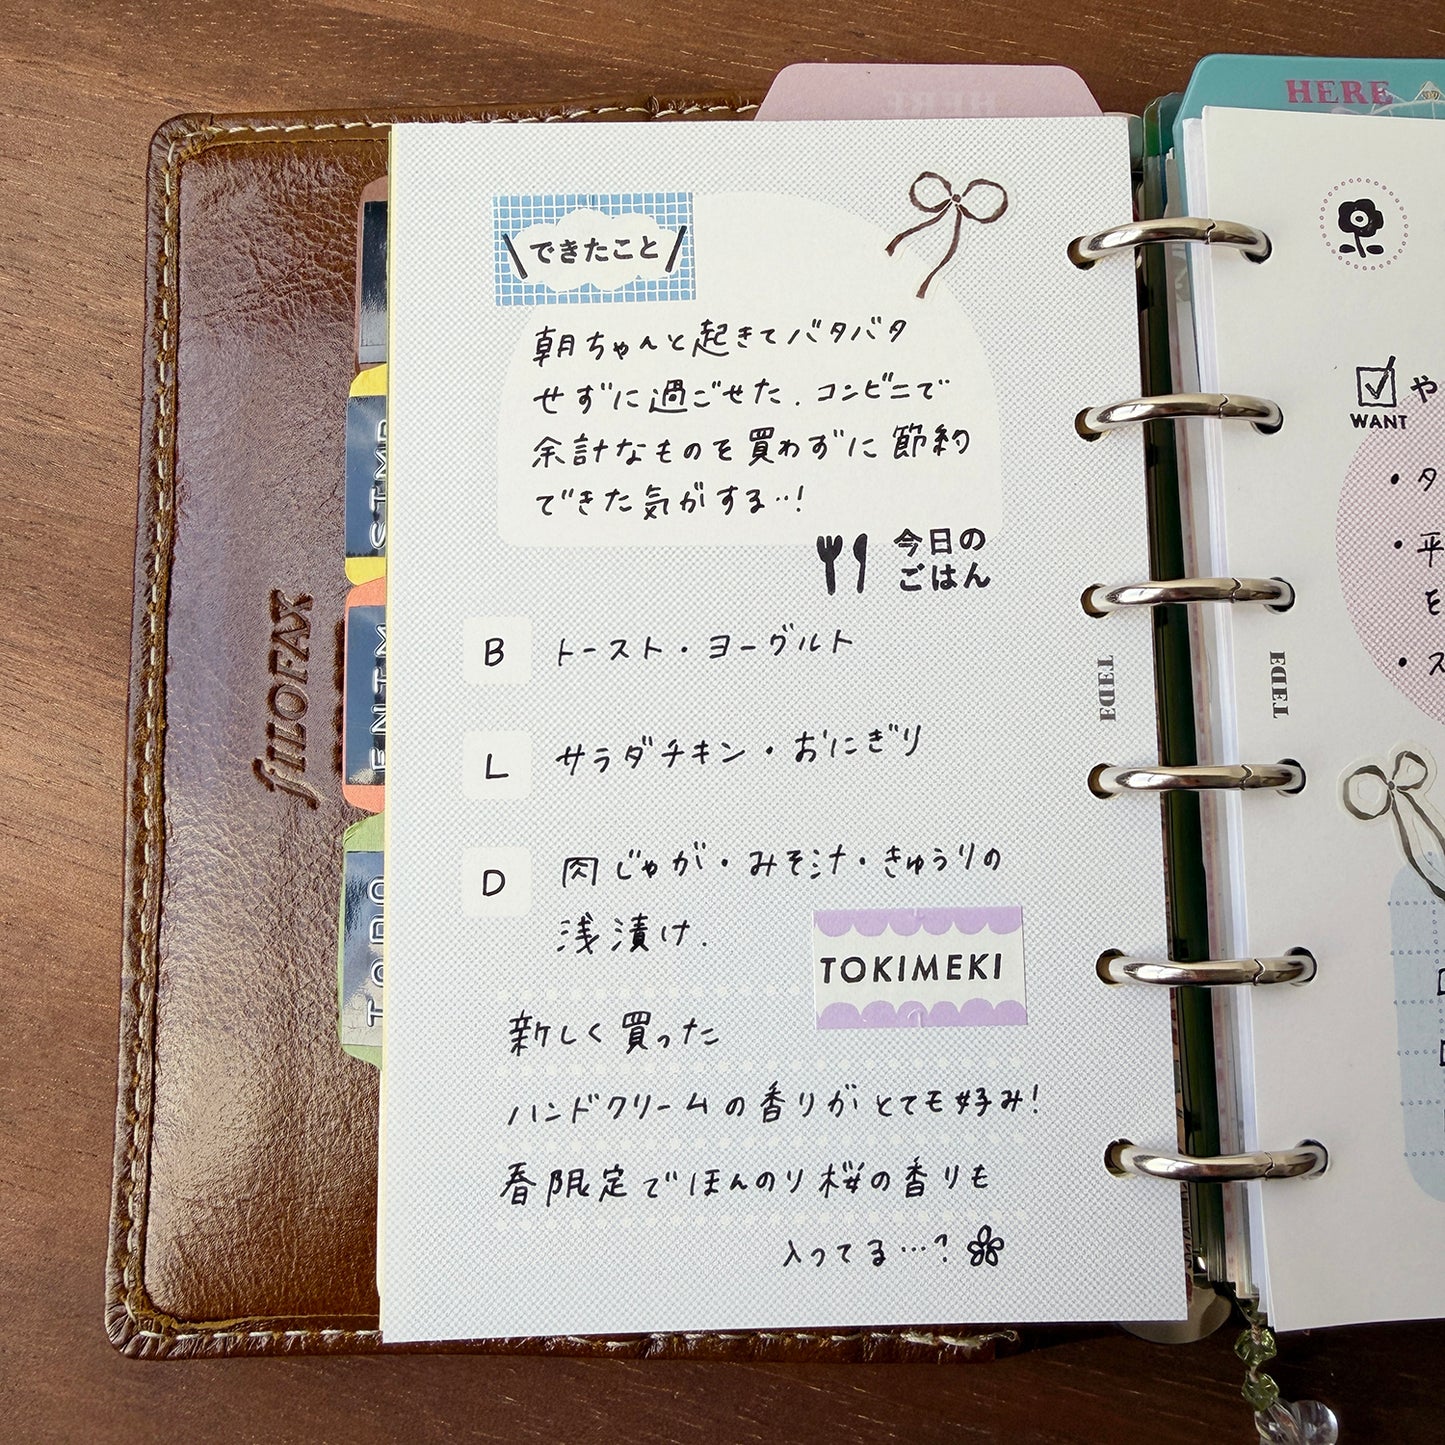 HERE
HERE
できたこと
朝ちゃんと起きてバタバタ
せずに過ごせた.コンビニで
余計なものを買わずに節約
できた気がする…!
今日の
ごはん
B トースト・ヨーグルト
L サラダチキン・おにぎり
D 肉じゃが・みそ汁・きゅうりの
浅漬け.
TOKIMEKI
新しく買った
ハンドクリームの香りがとても好み!
春限定でほんのり桜の香りも
入ってる…?
filOFAX
TODO
WANT
や
・タ
・平
を
・ス